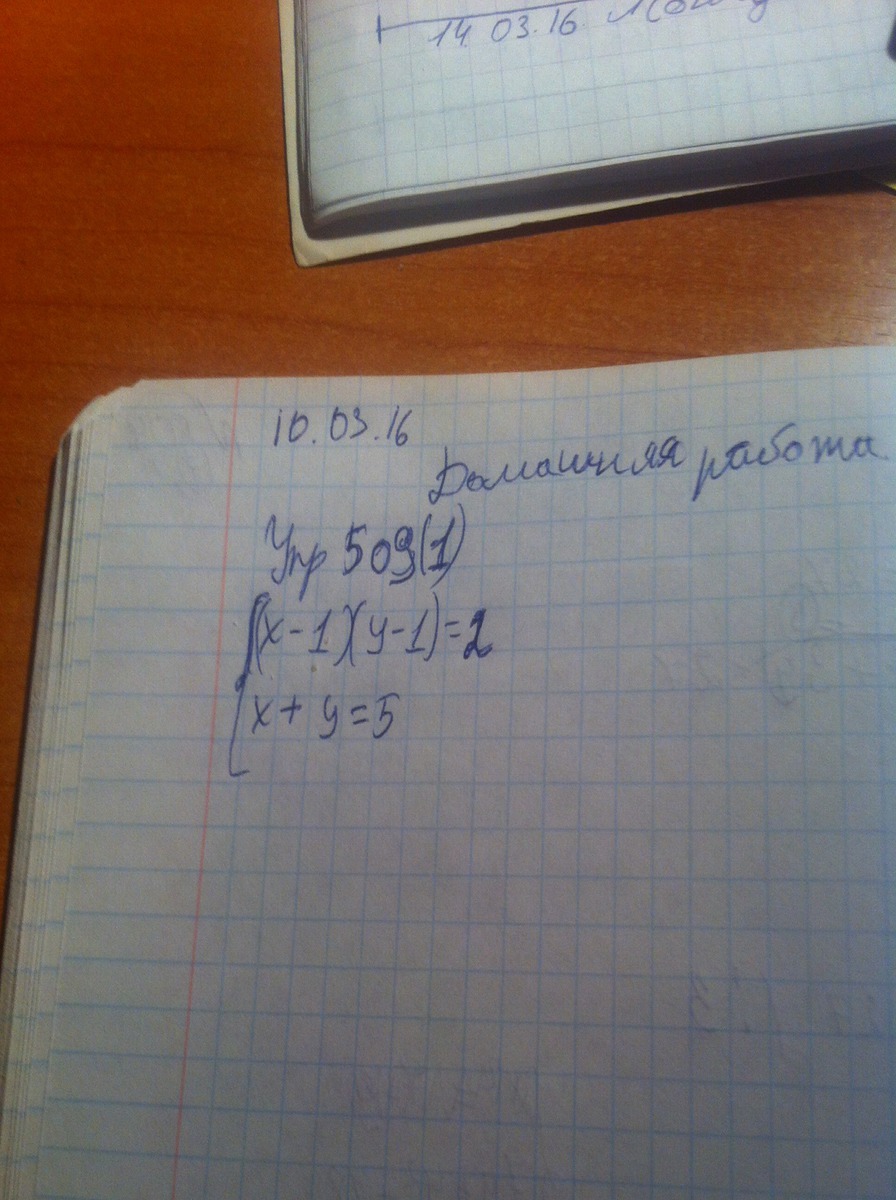 14.03.16
10.03.16
Домашняя работа
Упр 509(1)
(x-1)(y-1)=2
x+y=5